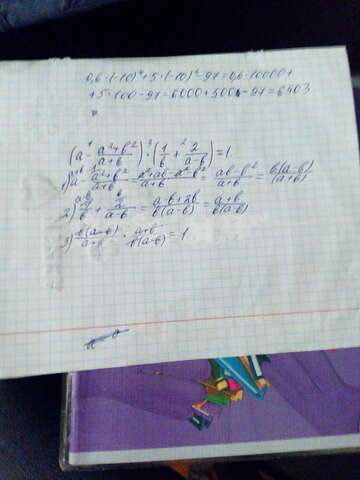 0,6·(-10)⁴+5·(-10)²-97=0,6·10000+
+5·100-97=6000+500-97=6403
(a - (a²+b²)/(a+b)) ³· (1/b + ² 2/(a-b)) = 1
1) a - (a²+b²)/(a+b) = (a²+ab-a²-b²)/(a+b) = (ab-b²)/(a+b) = b(a-b)/(a+b)
2) 1/b + 2/(a-b) = (a-b+2b)/(b(a-b)) = (a+b)/(b(a-b))
3) b(a-b)/(a+b) · (a+b)/(b(a-b)) = 1